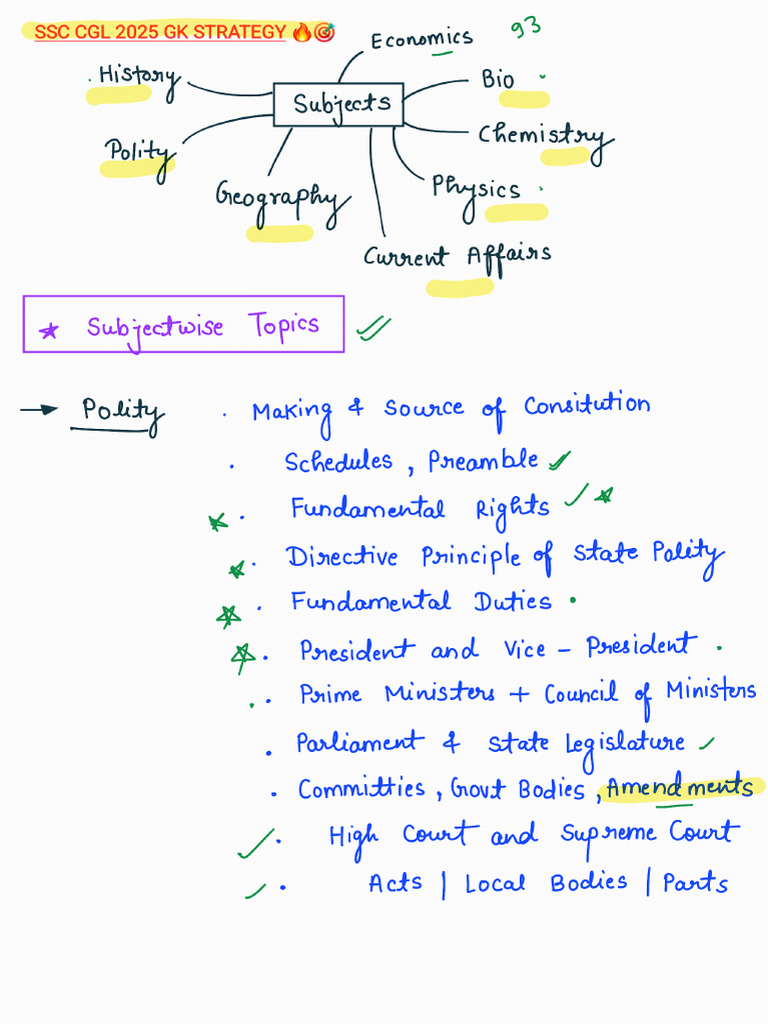 SSC CGL 2025 GK STRATEGY 🔥🎯
Economics
93
History
Bio
Subjects
Chemistry
Polity
Geography
Physics
Current Affairs
★ Subjectwise Topics
→ Polity
. Making & Source of Consitution
. Schedules, Preamble
. Fundamental Rights
. Directive Principle of State Polity
. Fundamental Duties
. President and Vice - President
. Prime Ministers + Council of Ministers
. Parliament & State Legislature
. Committies, Govt Bodies, Amendments
. High Court and Supreme Court
. Acts | Local Bodies | Parts